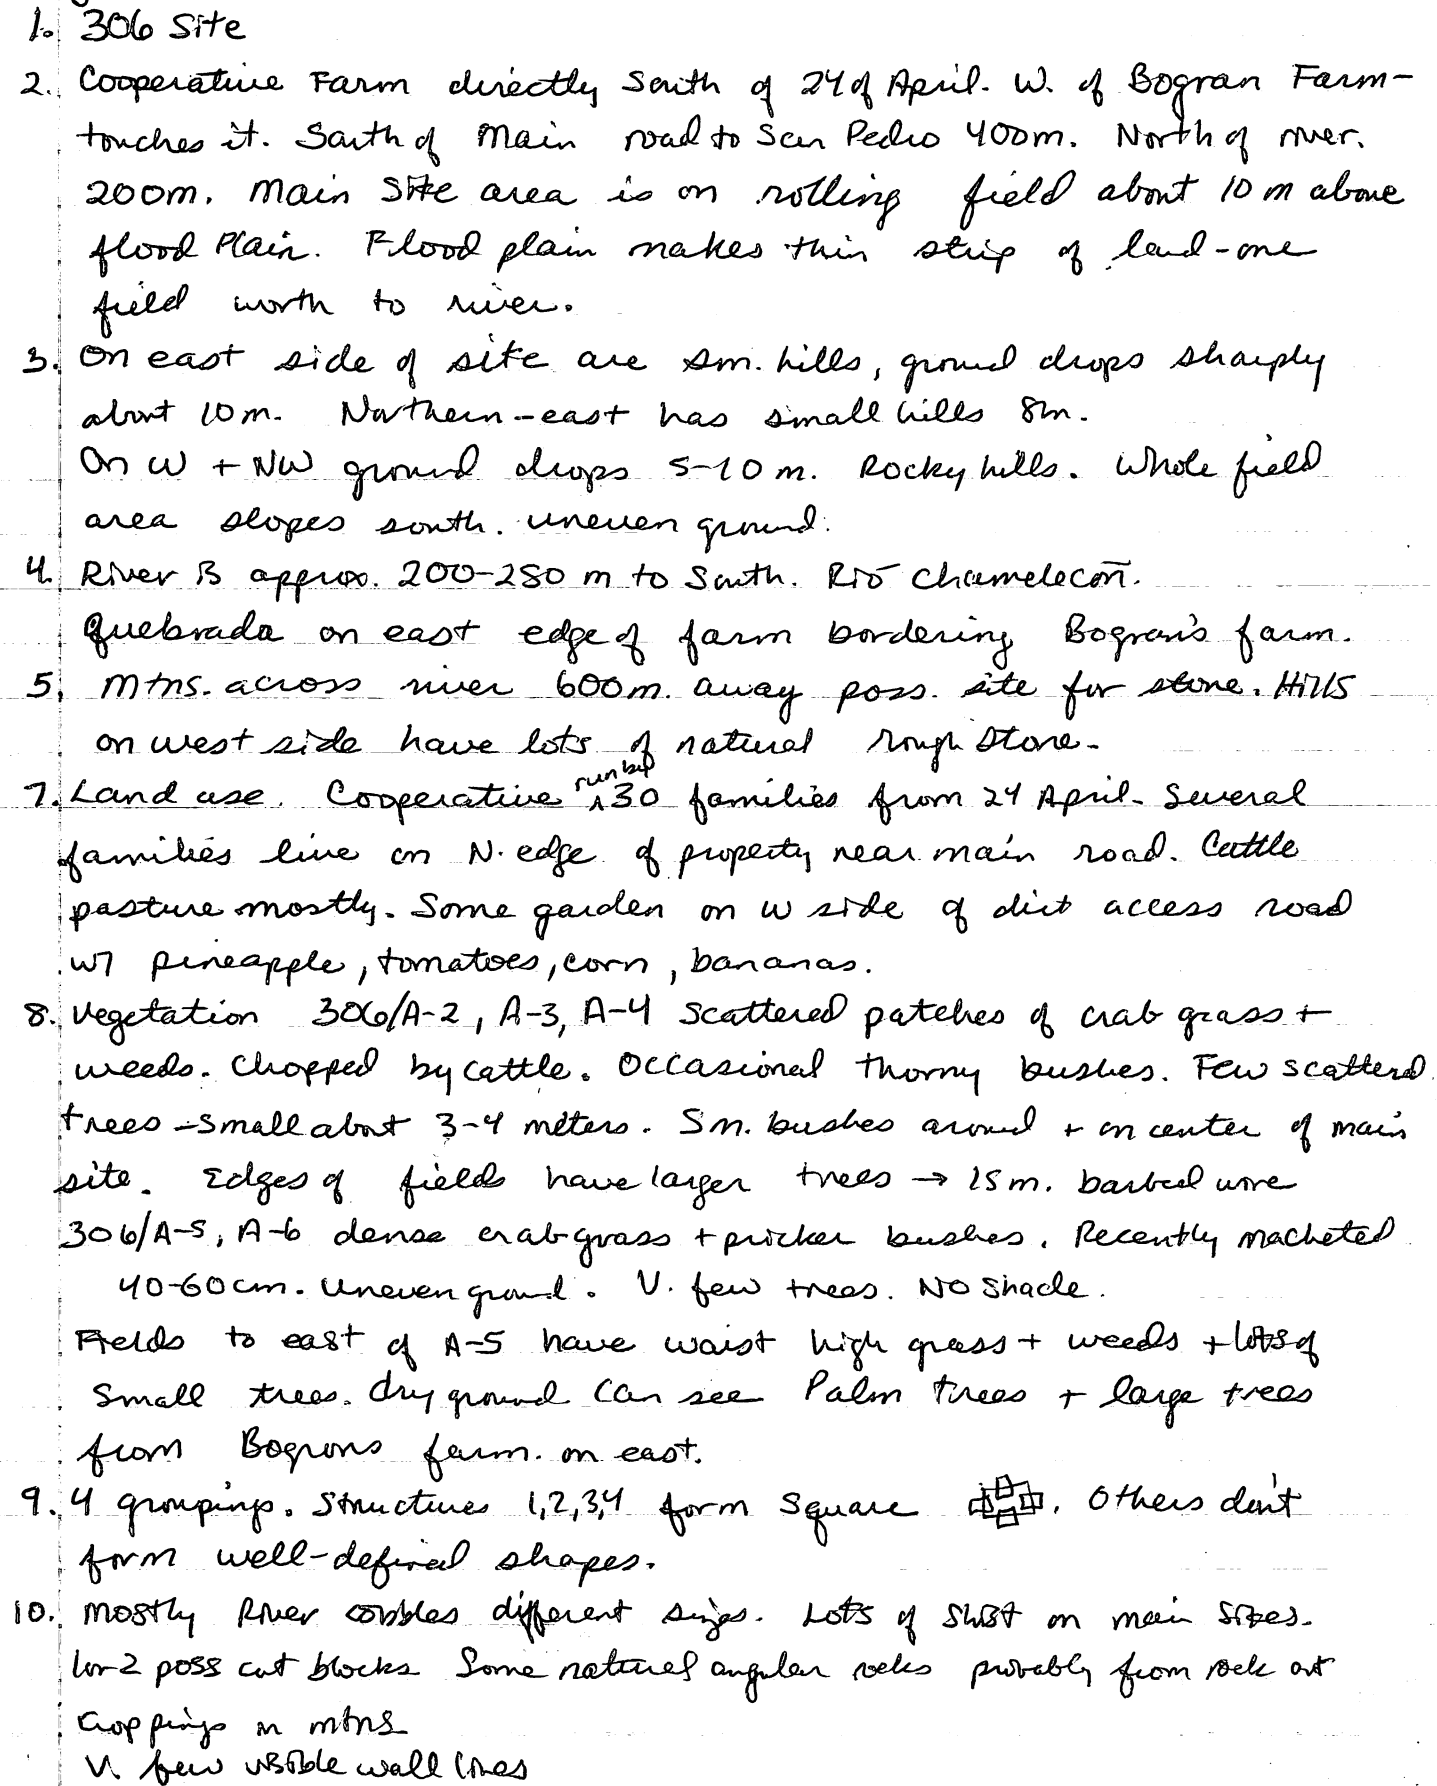 1. 306 Site
2. Cooperative Farm directly South of 24 of April. W. of Bogran Farm-
touches it. South of Main road to San Pedro 400m. North of river.
200m. Main Site area is on rolling field about 10 m above
flood Plain. Flood plain makes thin strip of land-one
field worth to river.
3. On east side of site are sm. hills, ground drops sharply
about 10m. Northern-east has small hills 8m.
On W + NW ground drops 5-10 m. Rocky hills. Whole field
area slopes south. uneven ground.
4. River is approx. 200-250 m to South. Rio Chamelecon.
Quebrada on east edge of farm bordering Bogran's farm.
5. Mtns. across river 600m. away poss. site for stone. Hills
on west side have lots of natural rough stone.
run by
7. Land use. Cooperative ^30 families from 24 April. Several
families live on N. edge of property near main road. Cattle
pasture mostly. Some garden on W side of dirt access road
w/ pineapple, tomatoes, corn, bananas.
8. Vegetation 306/A-2, A-3, A-4 Scattered patches of crab grass +
weeds. Chopped by cattle. Occasional thorny bushes. Few scattered
trees - small about 3-4 meters. Sm. bushes around + on center of main
site. Edges of fields have larger trees → 15m. barbed wire
306/A-5, A-6 dense crab grass + pricker bushes. Recently macheted
40-60cm. Uneven ground. V. few trees. No Shade.
Fields to east of A-5 have waist high grass + weeds + lots of
small trees. dry ground Can see Palm trees + large trees
from Bogrons farm. on east.
9. 4 groupings. Structures 1,2,3,4 form square. Others don't
form well-defined shapes.
10. Mostly River cobbles different sizes. Lots of Shist on main sites.
1 or 2 poss cut blocks Some natural angular rocks probably from rock out
croppings in mtns
V. few visible wall lines